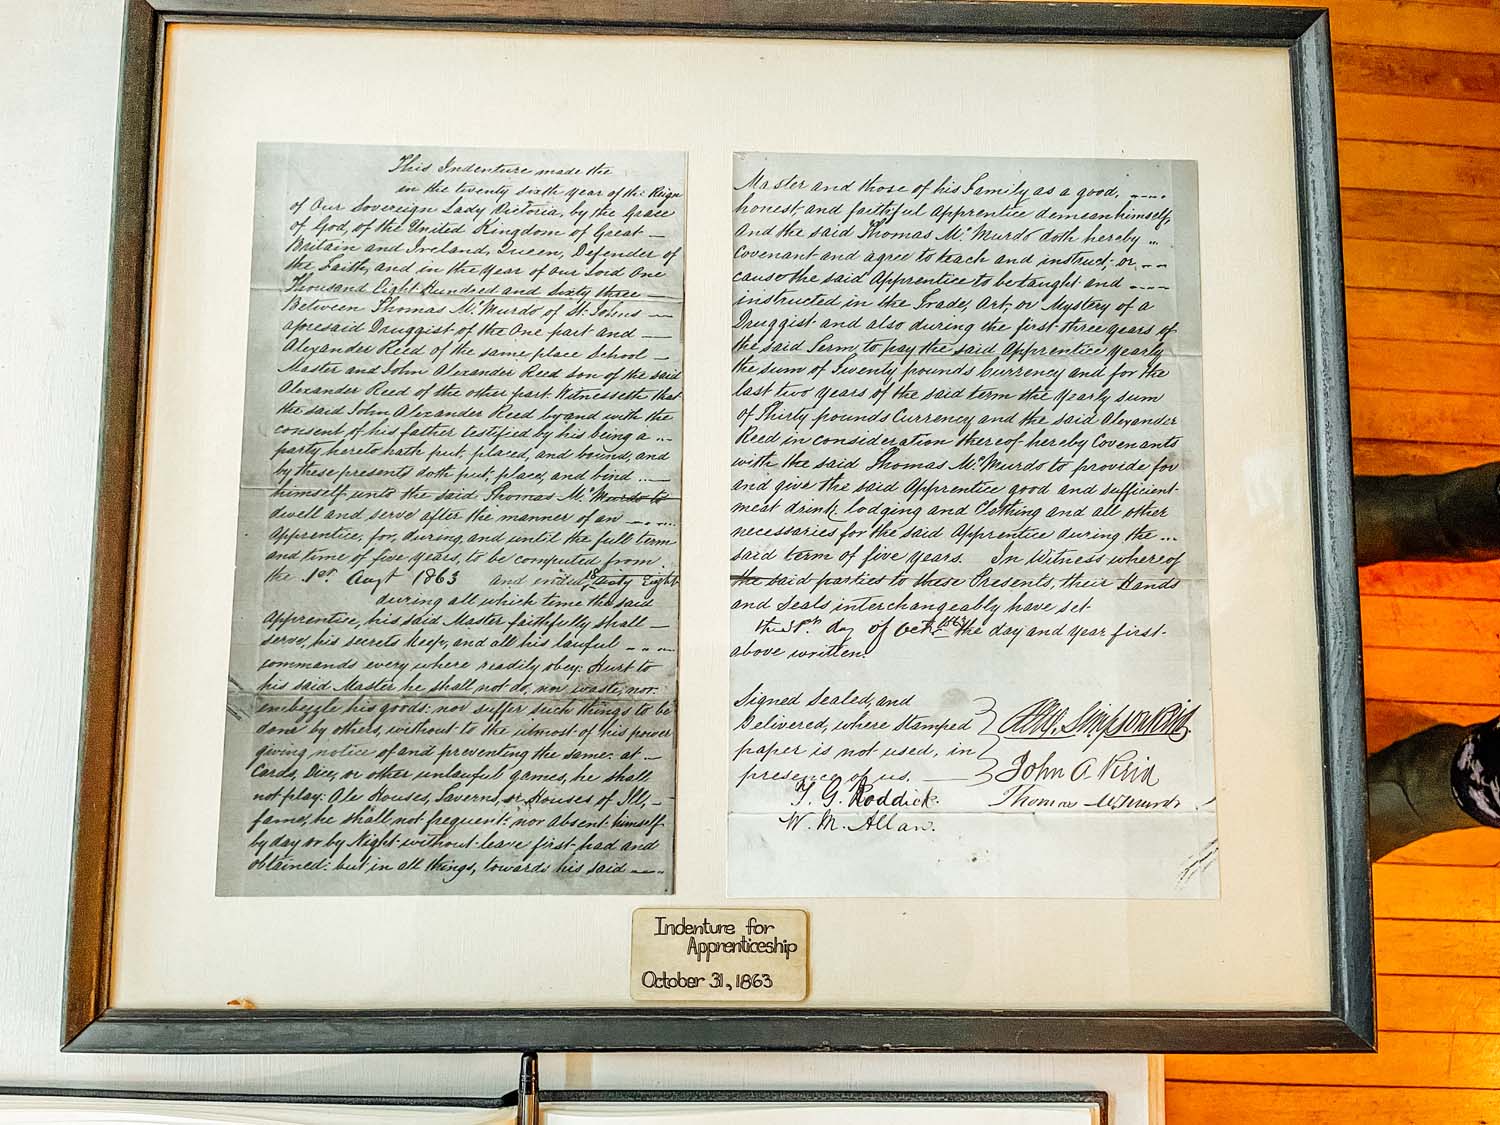 This Indenture made the
in the twenty sixth year of the Reign
of Our Sovereign Lady Victoria, by the Grace
of God, of the United Kingdom of Great —
Britain and Ireland, Queen, Defender of
the Faith, and in the year of Our Lord One
Thousand Eight Hundred and Sixty three —
Between Thomas McMurdo of St Johns —
aforesaid Druggist of the One part and —
Alexander Reed of the same place School —
Master and John Alexander Reed son of the said
Alexander Reed of the other part Witnesseth that
the said John Alexander Reed by and with the
consent of his father testified by his being a
party hereto hath put, placed, and bound, and
by these presents doth put, place, and bind
himself, unto the said Thomas McMurdo to
dwell and serve after the manner of an
Apprentice, for, during, and until the full term
and time of five years, to be computed from
the 1st Augt 1863 and ended Sixty Eight
during all which time the said
Apprentice, his said Master faithfully shall —
serve, his secrets keep, and all his lawful
commands every where readily obey: Hurt to
his said Master he shall not do, nor waste, nor
embezzle his goods: nor suffer such things to be
done by others, without to the utmost of his power
giving notice of and preventing the same: at —
Cards, Dice, or other unlawful games, he shall
not play: Ale Houses, Taverns, or Houses of Ill, —
fame, he shall not frequent: nor absent himself
by day or by Night without leave first had and
obtained: but in all things, towards his said
Master and those of his Family as a good,
honest, and faithful Apprentice demean himself,
And the said Thomas McMurdo doth hereby
Covenant and agree to teach and instruct, or
cause the said Apprentice to be taught and
instructed in the Trade, Art, or Mystery of a
Druggist and also during the first three years of
the said Term to pay the said Apprentice yearly
the sum of Twenty pounds Currency and for the
last two years of the said term the yearly sum
of Thirty pounds Currency and the said Alexander
Reed in consideration thereof hereby Covenants
with the said Thomas McMurdo to provide for
and give the said Apprentice good and sufficient
meat drink, lodging and Clothing and all other
necessaries for the said Apprentice during the
said term of five years. In Witness whereof
the said parties to these Presents, their Hands
and Seals interchangeably have set
this day of Oct 1863 the day and year first
above written.
Signed Sealed, and
Delivered, where stamped
paper is not used, in
presence of us. —
John A Reid
Thomas McMurdo
T. G. Roddick.
W. M. Allan.
Indenture for
Apprenticeship
October 31, 1863